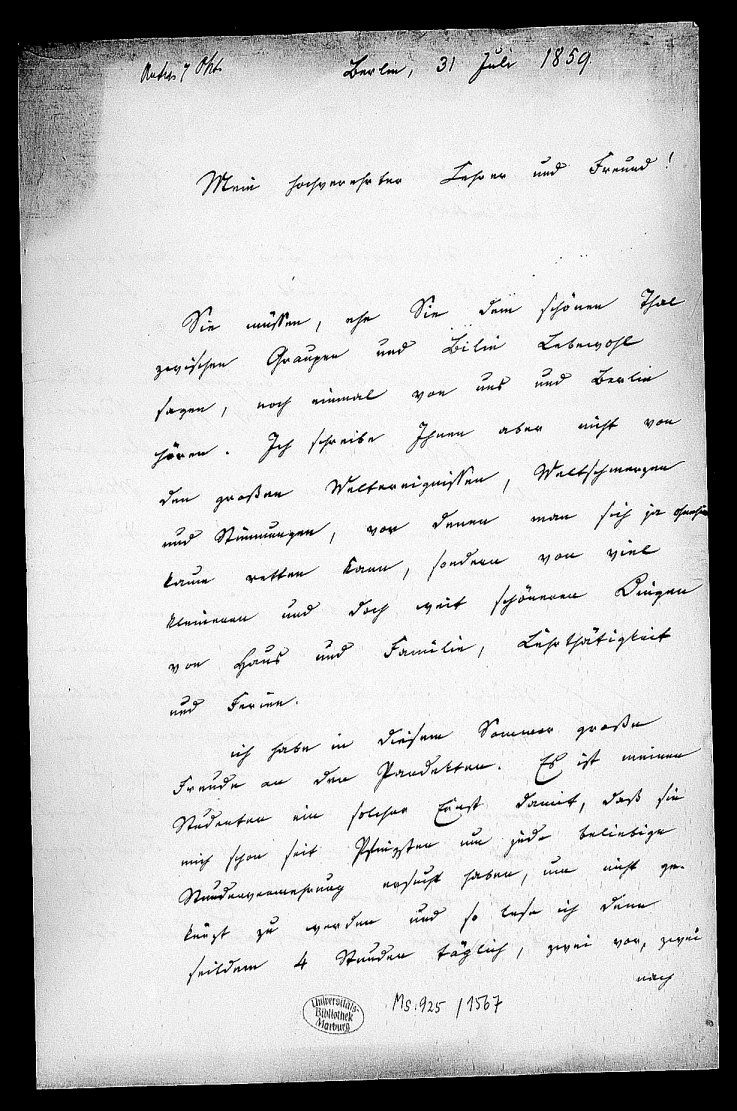 Berlin, 31 Juli 1859
Mein hochverehrter Lehrer und Freund!
Sie müssen, ehe Sie dem schönen Thal
zwischen Graupen und Bilin Lebewohl
sagen, noch einmal von uns und Berlin
hören. Ich schreibe Ihnen aber nicht von
den großen Weltereignissen, Weltschmerzen
und Stimmungen, vor denen man sich ja ohnehin
kaum retten kann, sondern von viel
kleineren und doch weit schöneren Dingen
von Haus und Familie, Lehrthätigkeit
und Ferien.
ich habe in diesem Sommer große
Freude an den Pandekten. Es ist meinen
Studenten ein solcher Ernst damit, daß sie
mich schon seit Pfingsten um jede beliebige
Stundenvermehrung ersucht haben, um nicht ge-
kürzt zu werden und so lese ich denn
seitdem 4 Stunden täglich, zwei vor, zwei
nach
Universitäts-
Bibliothek
Marburg
Ms. 925 / 1567